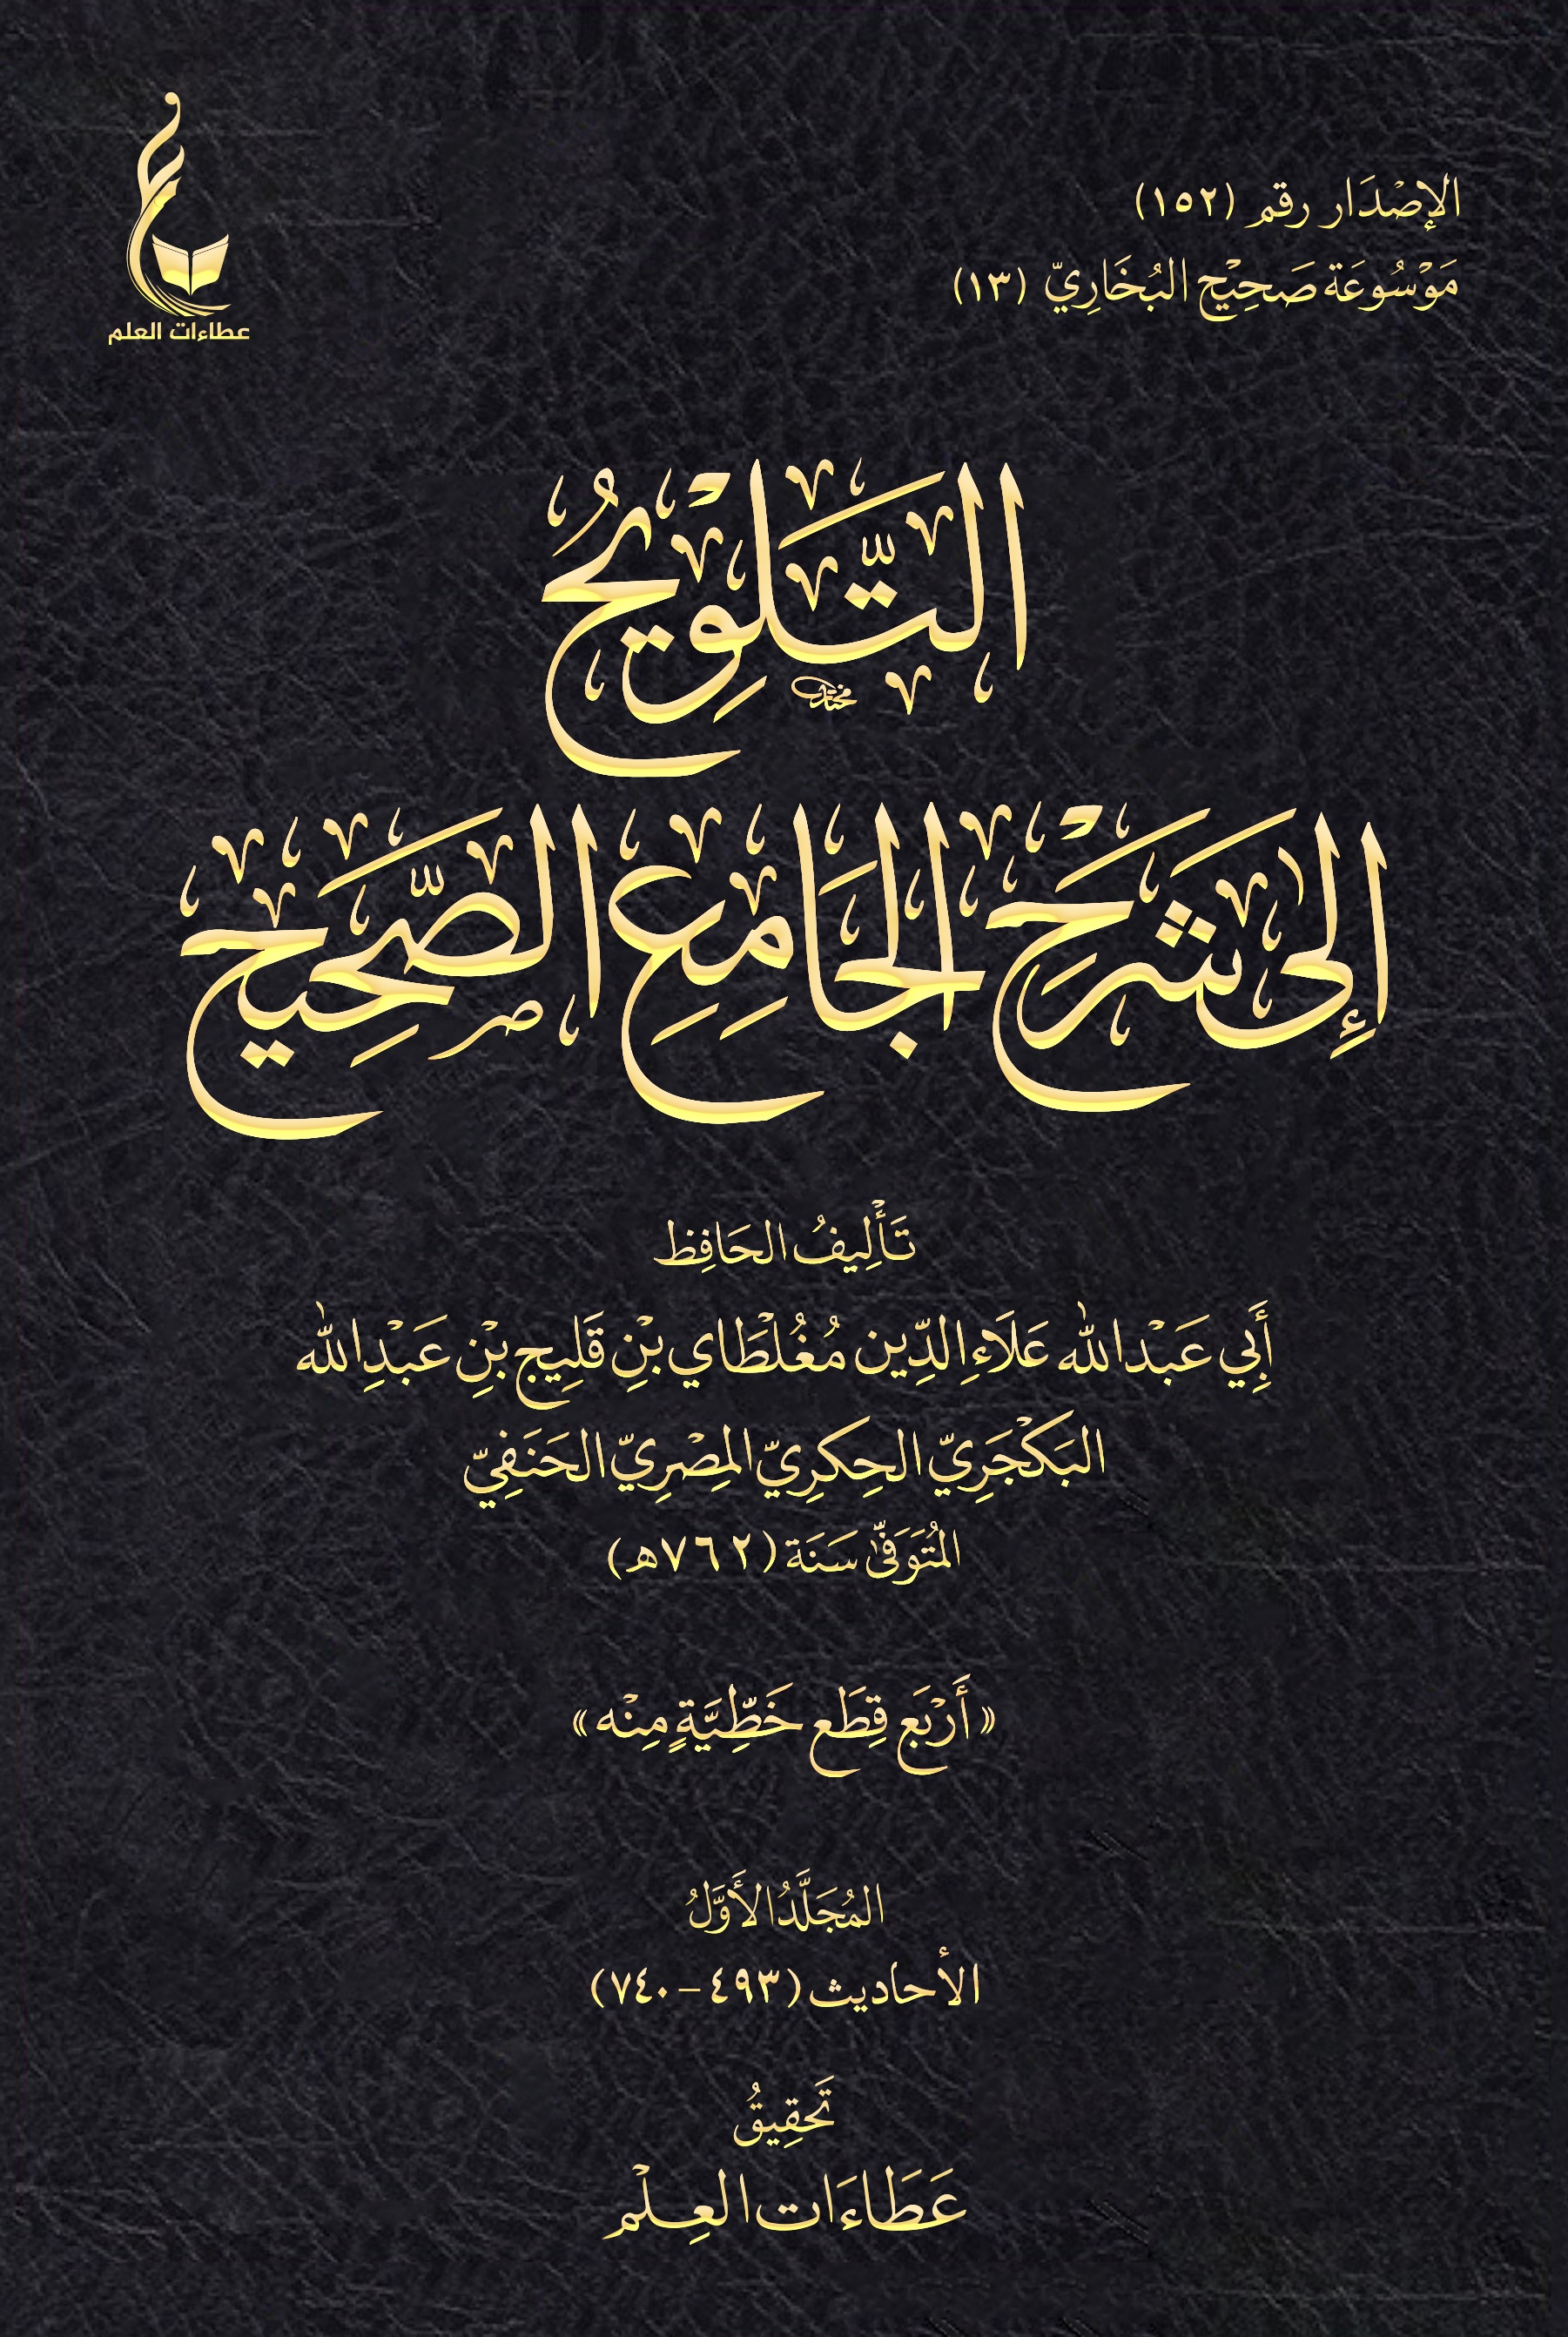 الإصْدَار رقم (١٥٢)
مَوْسُوعَة صَحِيْح البُخَارِيّ (١٣)
عطاءات العلم
التَّلْوِيْحُ
مختار
إِلى شَرْحِ الجَامِعِ الصَّحِيْحِ
تَأْلِيفُ الحَافِظ
أَبِي عَبْدالله عَلَاءِ الدِّين مُغُلْطَاي بْنِ قَلِيج بْنِ عَبْدِالله
البَكْجَرِيّ الحِكرِيّ المِصْرِيّ الحَنَفِيّ
المُتَوَفَّى سَنَة (٧٦٢هـ)
«أَرْبَع قِطَع خَطِّيَّةٍ مِنْه»
المُجَلَّدُ الأَوَّلُ
الأحاديث (٤٩٣-٧٤٠)
تَحقِيقُ
عَطَاءَات العِلْم